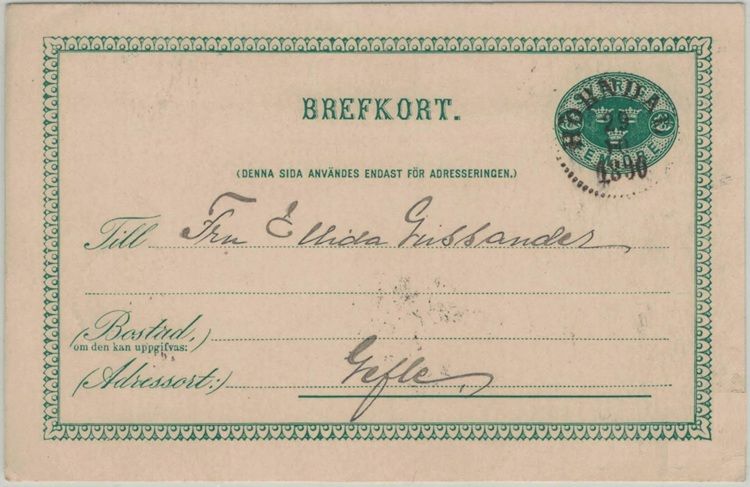 BREFKORT.
FEM ÖRE
29
1890
(DENNA SIDA ANVÄNDES ENDAST FÖR ADRESSERINGEN.)
Till Fru Ellida Grissander
(Bostad,)
om den kan uppgifvas:
(Adressort:)
Gefle,